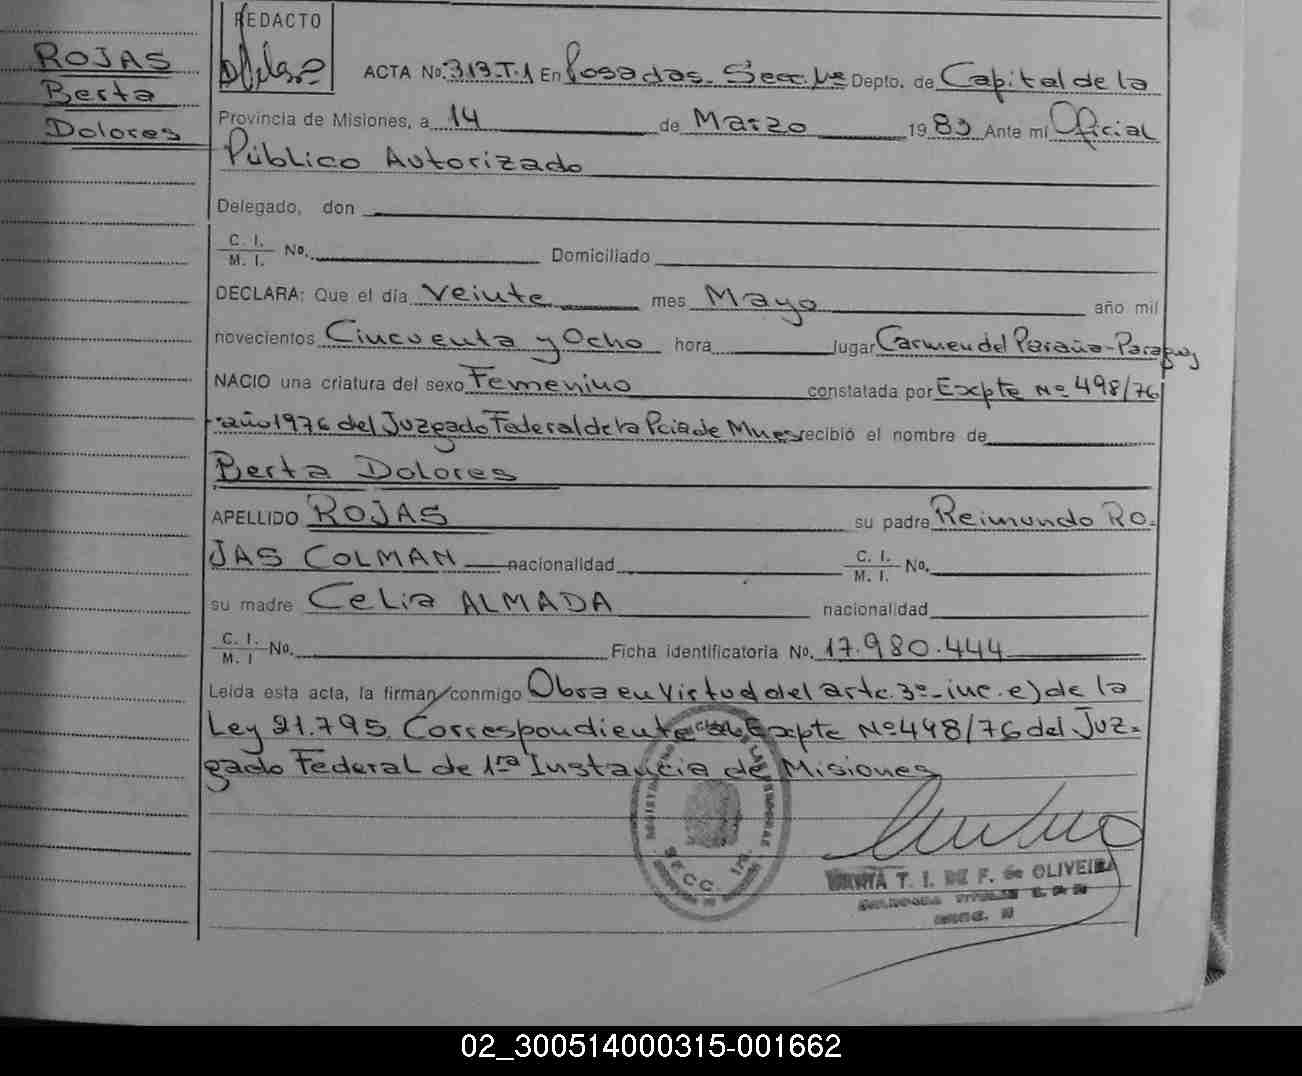 ROJAS
Berta
Dolores
REDACTO
ACTA No. 313-T.1 En Posadas-Secc.1ra Depto. de Capital de la
Provincia de Misiones, a 14 de Marzo 1983 Ante mí Oficial
Público Autorizado
Delegado, don
C. I.
M. I. No. Domiciliado
DECLARA: Que el día Veinte mes Mayo año mil
novecientos Cincuenta y Ocho hora lugar Carmen del Paraña-Paraguay
NACIO una criatura del sexo Femenino constatada por Expte Nº 498/76
año 1976 del Juzgado Federal de la Pcia de Mnes recibió el nombre de
Berta Dolores
APELLIDO ROJAS su padre Reimundo RO-
JAS COLMAN nacionalidad C. I. M. I. No.
su madre Celia ALMADA nacionalidad
C. I. M. I No. Ficha identificatoria No. 17.980.444
Leída esta acta, la firman conmigo Obra en Virtud del artc. 3º-inc. e) de la
Ley 21.795 Correspondiente Expte Nº 498/76 del Juz-
gado Federal de 1ra Instancia de Misiones
SECC. 1ra.
T. I. DE F. de OLIVEIRA
02_300514000315-001662